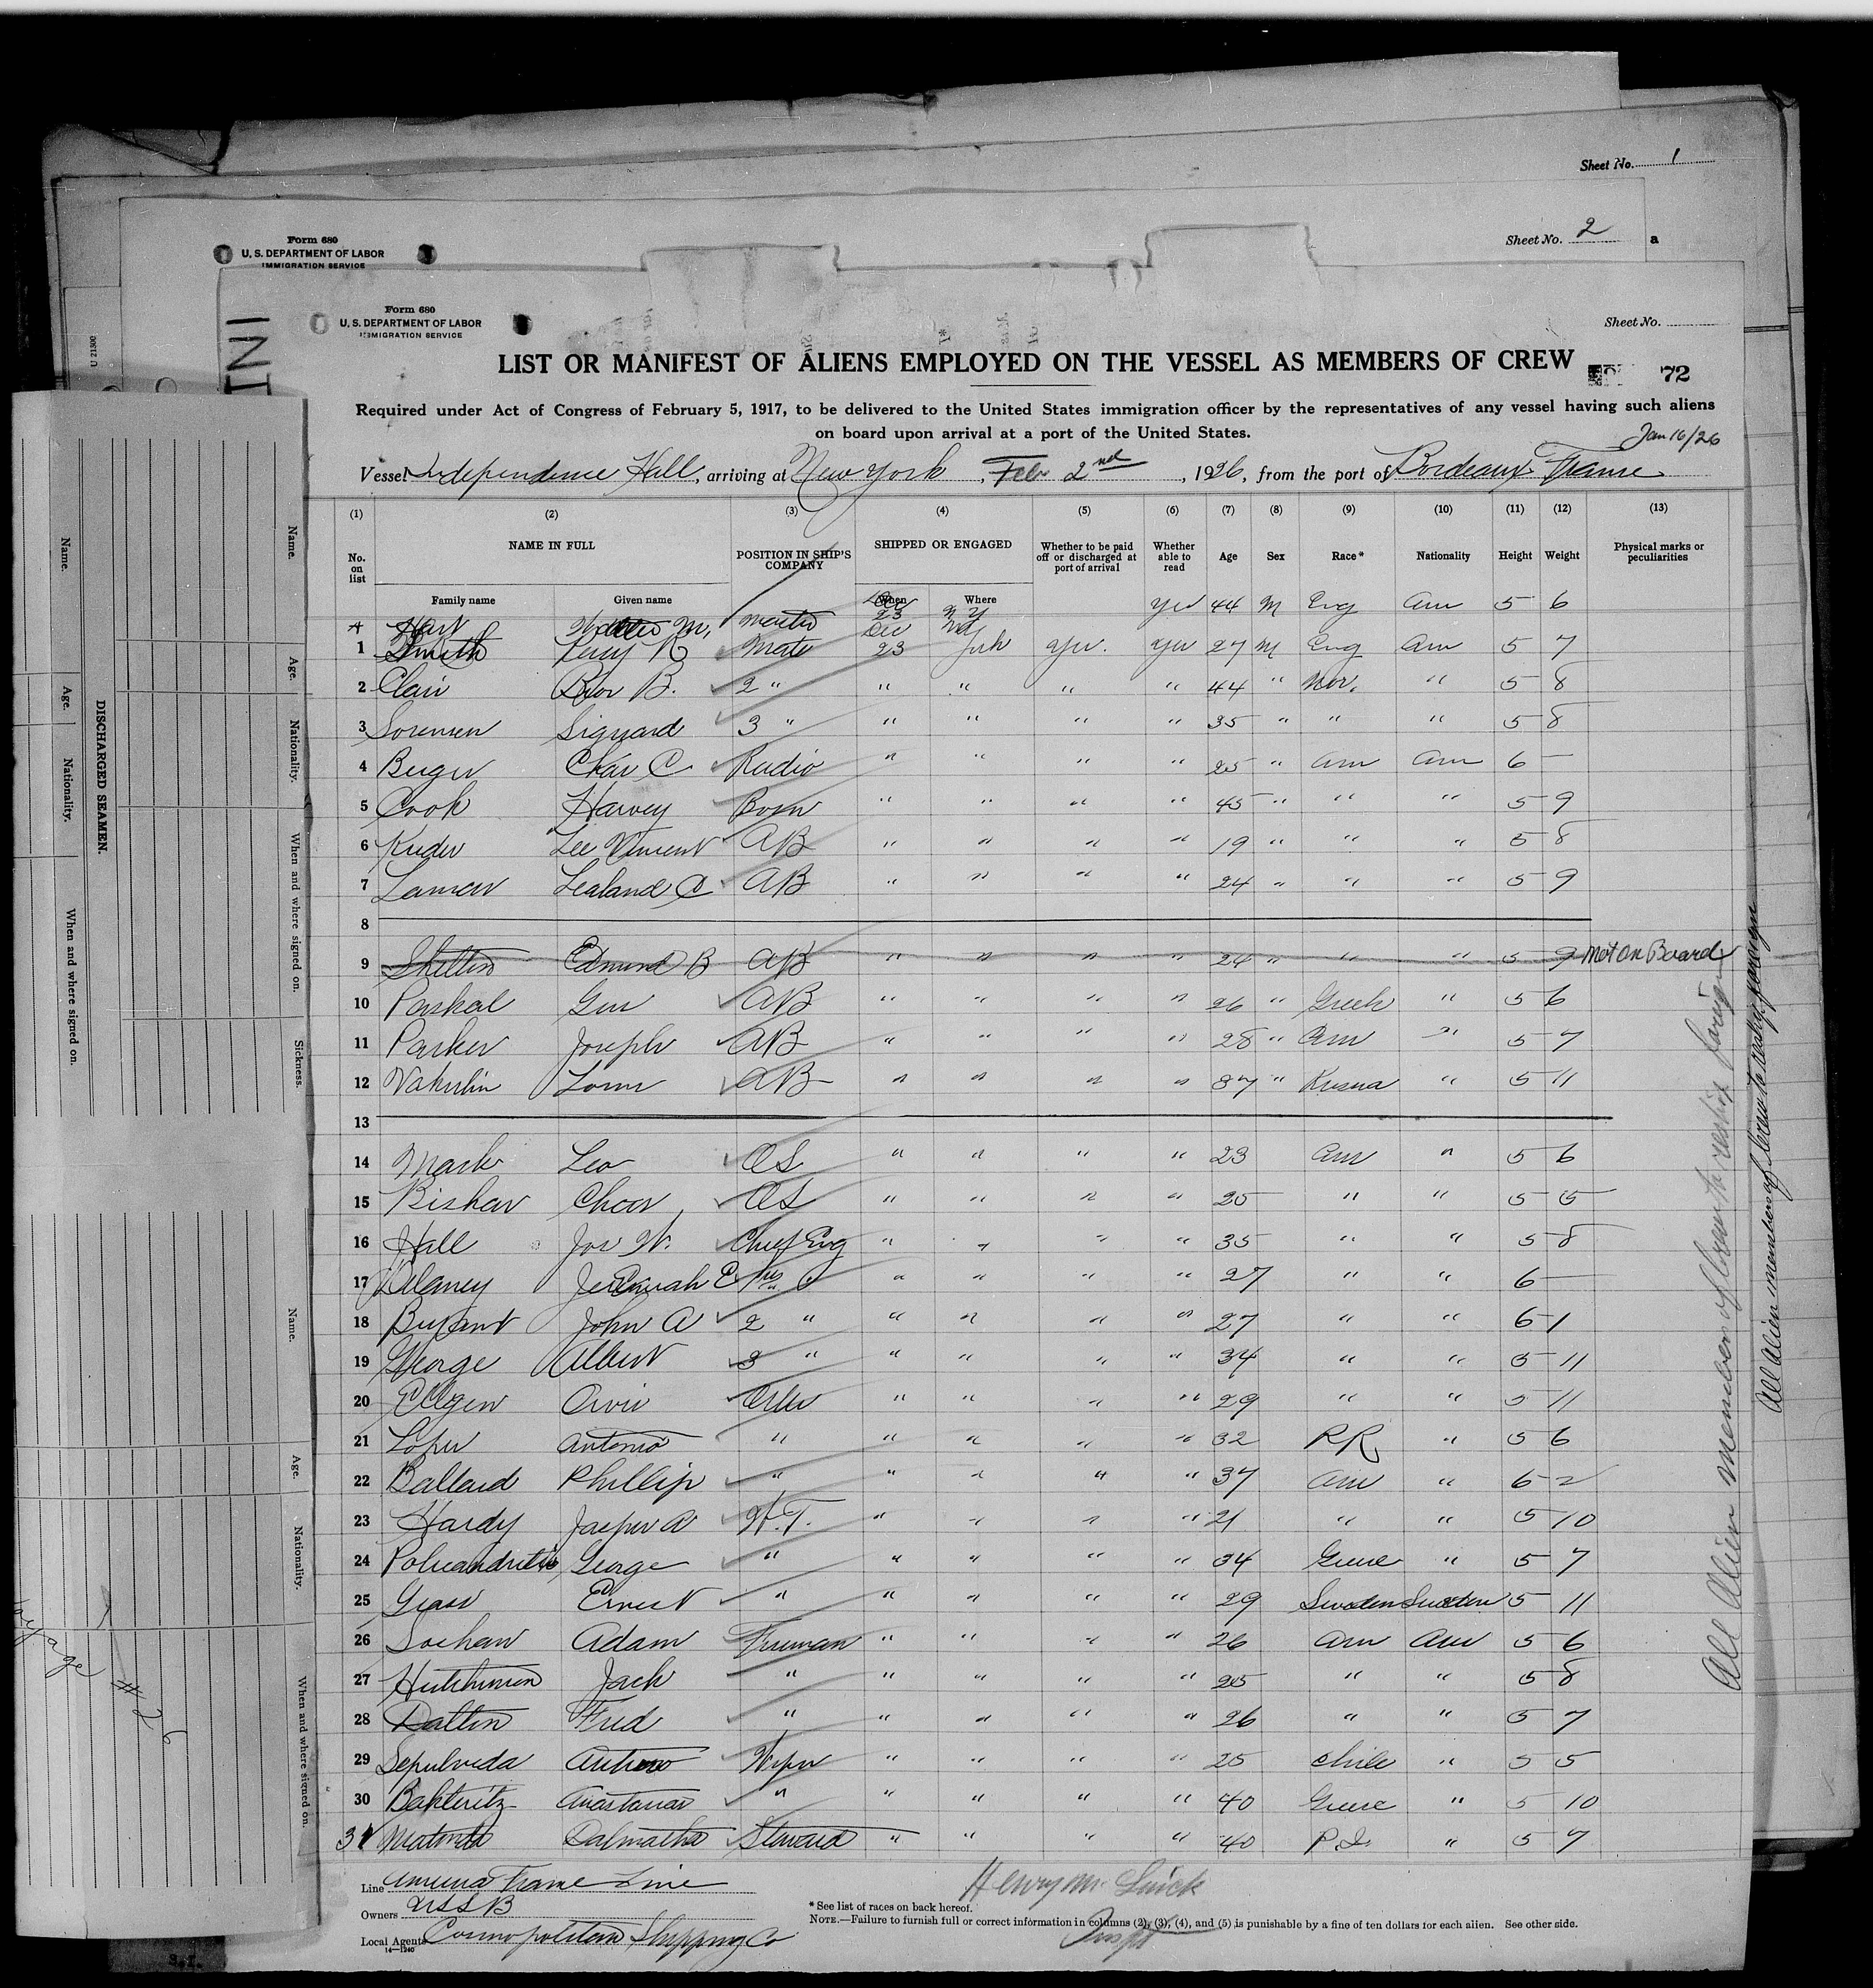 Sheet No. 1
Form 680
U. S. DEPARTMENT OF LABOR
IMMIGRATION SERVICE
Sheet No. 2 a
Form 680
U. S. DEPARTMENT OF LABOR
IMMIGRATION SERVICE
Sheet No.
LIST OR MANIFEST OF ALIENS EMPLOYED ON THE VESSEL AS MEMBERS OF CREW
72
Required under Act of Congress of February 5, 1917, to be delivered to the United States immigration officer by the representatives of any vessel having such aliens
on board upon arrival at a port of the United States.
Jan 16/26
Vessel Independence Hall, arriving at New York, Feb 2nd, 1926, from the port of Bordeaux France
(1) (2) (3) (4) (5) (6) (7) (8) (9) (10) (11) (12) (13)
No. on list NAME IN FULL POSITION IN SHIP'S COMPANY SHIPPED OR ENGAGED Whether to be paid off or discharged at port of arrival Whether able to read Age Sex Race* Nationality Height Weight Physical marks or peculiarities
Family name Given name When Where
Hart M. Master Dec 23 N Y Yes 44 M Eng Am 5 6
1 Smith Percy R Mate Dec 23 New York Yes. Yes 27 M Eng Am 5 7
2 Clair B. 2 " " " " " 44 " Nor. " 5 8
3 Sorensen Siguard 3 " " " " " 35 " " " 5 8
4 Chas C Radio " " " " 25 " Am Am 6 —
5 Cook Harvey Bosn " " " " 45 " " " 5 9
6 Kuder Lee Vincent AB " " " " 19 " " " 5 8
7 Lealand C AB " " " " 24 " " " 5 9
8
9 Shelton Edmund B AB " " " " 24 " " " 5 9 Not on Board
10 Paskal Gus AB " " " " 26 " Greek " 5 6
11 Parker Joseph AB " " " " 28 " Am " 5 7
12 Vakulin Louis AB " " " " 37 " Russia " 5 11
13
14 Mark Leo OS " " " " 23 Am " 5 6
15 Chas OS " " " " 25 " " 5 5
16 Hall Jos W. Chief Eng " " " " 35 " " 5 8
17 Delaney Jeremiah E " " " " 27 " " 6 —
18 Bryant John A 2 " " " " " 27 " " 6 1
19 George Albert 3 " " " " " 34 " " 5 11
20 Ellgen Oiler " " " " 29 " " 5 11
21 Lopez Antonio " " " " " 32 P R " 5 6
22 Ballard Phillip " " " " " 37 Am " 6 2
23 Hardy Jasper A W.T. " " " " 21 " " 5 10
24 George " " " " " 34 Greece " 5 7
25 Ernest " " " " " 29 Sweden Sweden 5 11
26 Sochan Adam Fireman " " " " 26 Am Am 5 6
27 Hutchinson Jack " " " " " 25 " " 5 8
28 Dalton Fred " " " " " 26 " " 5 7
29 Sepulveda Arturo Wiper " " " " 25 Chile " 5 5
30 Bakteritz Anastasias " " " " " 40 Greece " 5 10
31 Dalmatha Steward " " " " 40 P.I. " 5 7
Line America France Line
Owners USSB
Local Agents Cosmopolitan Shipping Co
14—1240
Henry M.
Inspt
* See list of races on back hereof.
NOTE.—Failure to furnish full or correct information in columns (2), (3), (4), and (5) is punishable by a fine of ten dollars for each alien. See other side.
All Alien members of crew to reship foreign
All Alien members of crew to reship foreign
DISCHARGED SEAMEN.
Name. Age. Nationality. When and where signed on.
Name. Age. Nationality. When and where signed on. Sickness.
Name. Age. Nationality. When and where signed on.
# 26
INI